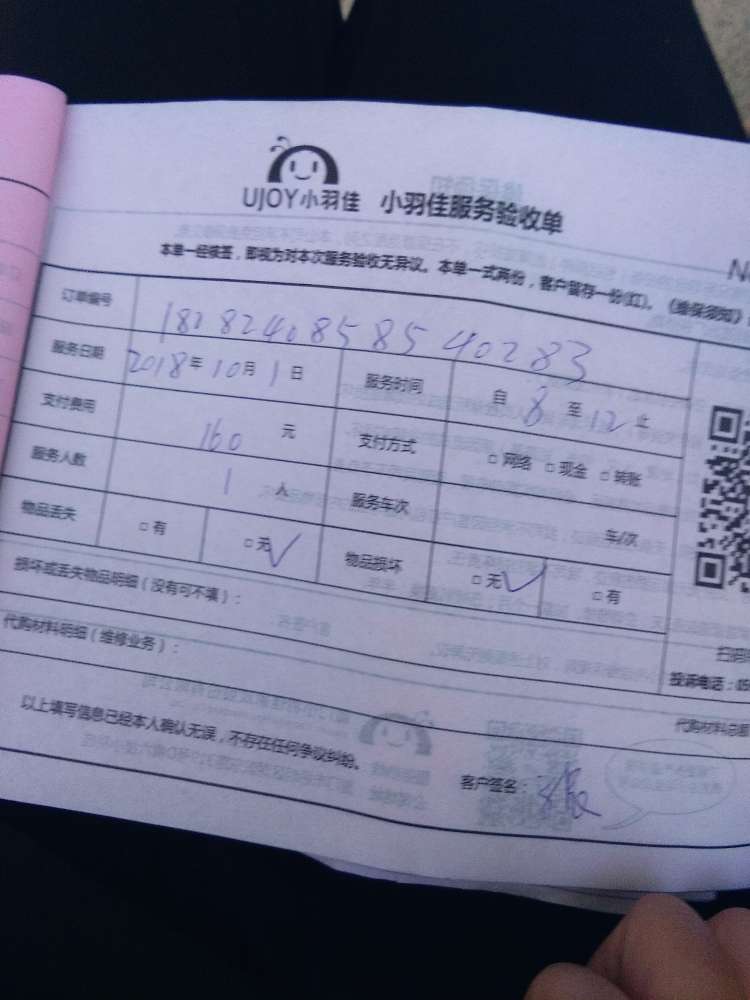 UJOY小羽佳 小羽佳服务验收单
本单一经被签，即视为对本次服务验收无异议。本单一式两份，客户留存一份(红)。《维保须知》
订单编号 18082408585 40283
服务日期 2018年10月1日 服务时间 自8至12止
支付费用 160元 支付方式 □网络 □现金 □转账
服务人数 1人 服务车次 车/次
物品丢失 □有 □无√ 物品损坏 □无√ □有
损坏或丢失物品明细（没有可不填）：
扫码
代购材料明细（维修业务）：
投诉电话：05
代购材料总
以上填写信息已经本人确认无误，不存在任何争议纠纷。
客户签名：